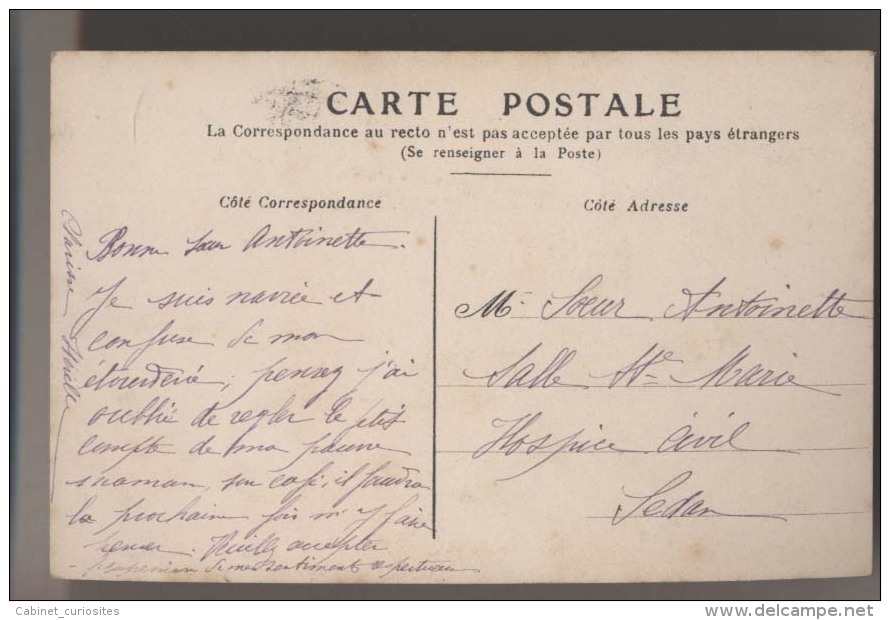 CARTE POSTALE
La Correspondance au recto n'est pas acceptée par tous les pays étrangers
(Se renseigner à la Poste)
Côté Correspondance
Bonne sœur Antoinette.
Je suis navrée et
confuse de mon
étourderie, pensez j'ai
oublié de regler le ptit
compte de ma pauvre
maman, son café, il faudra
la prochaine fois m'y faire
penser. Veuillez accepter
l'expression de mes sentiments respectueux
Côté Adresse
Me Soeur Antoinette
Salle Ste Marie
Hospice Civil
Sedan
Cabinet_curiosites
www.delcampe.net